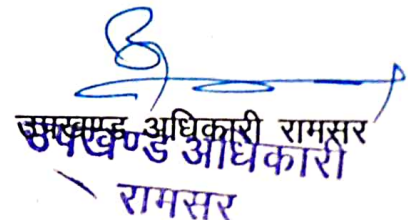 उपखण्ड अधिकारी रामसर
उपखण्ड अधिकारी
रामसर